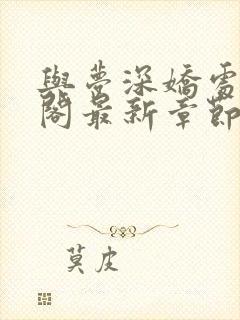 與夢深嬌雷
閣最新章節
莫皮